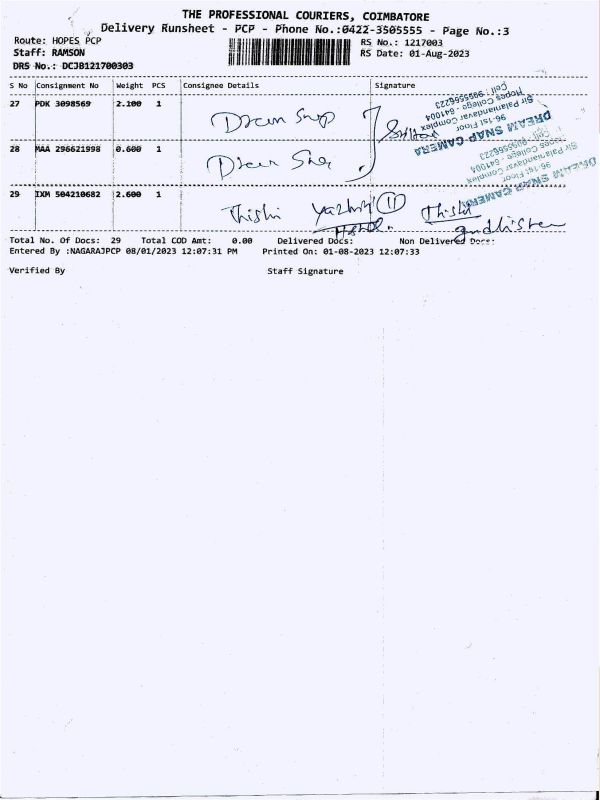 THE PROFESSIONAL COURIERS, COIMBATORE
Delivery Runsheet - PCP - Phone No.:0422-3505555 - Page No.:3
Route: HOPES PCP
RS No.: 1217003
Staff: RAMSON
RS Date: 01-Aug-2023
DRS No.: DCJB121700303
S No Consignment No Weight PCS Consignee Details Signature
27 PDK 3098569 2.100 1 Dream Snap
28 MAA 296621998 0.600 1 Dream Sna
29 IXM 504210682 2.600 1 Thishi
Thishi
DREAM SNAP CAMERA
96-1st Floor
Sir Palaniandavar Complex
Hopes College - 641004
Cell : 9095556223
DREAM SNAP CAMERA
96-1st Floor
Sir Palaniandavar Complex
Hopes College - 641004
Cell : 9095556223
Total No. Of Docs: 29 Total COD Amt: 0.00 Delivered Docs: Non Delivered Docs:
Entered By :NAGARAJPCP 08/01/2023 12:07:31 PM Printed On: 01-08-2023 12:07:33
Verified By Staff Signature